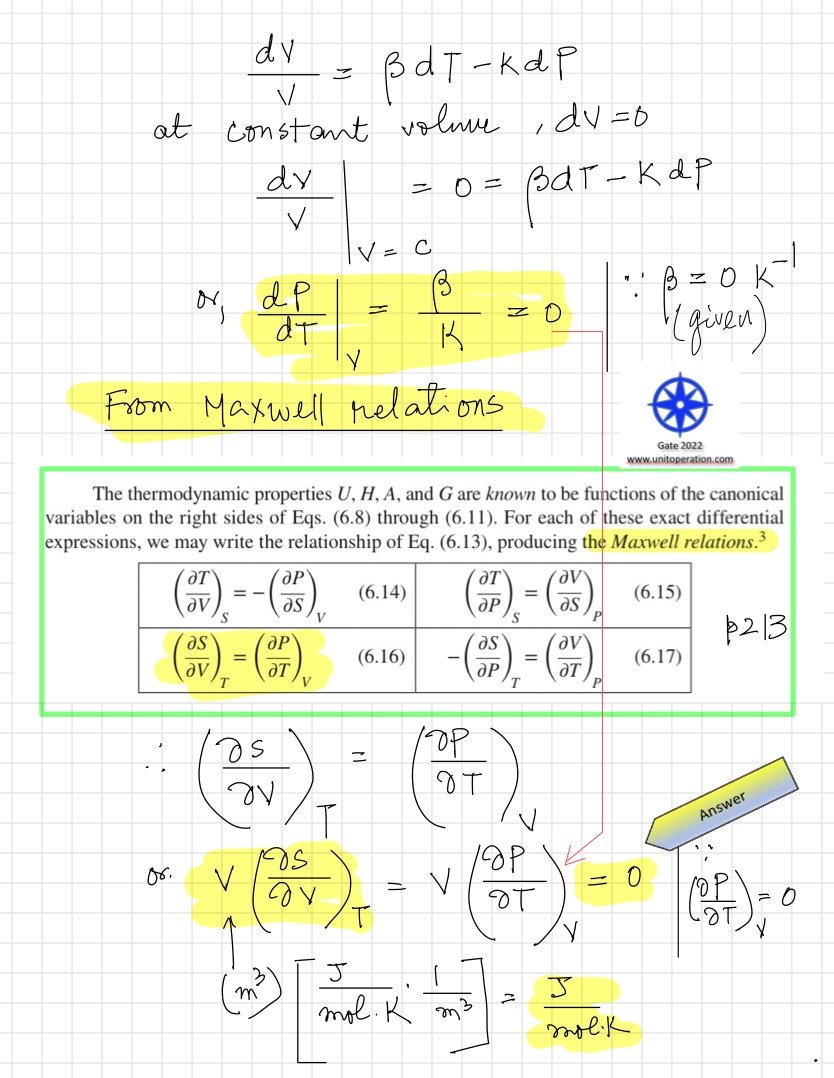 dV/V = βdT - KdP
at constant volume, dV = 0
dV/V |V = C = 0 = βdT - KdP
or, dP/dT |V = β/K = 0 | ∵ β = 0 K⁻¹
(given)
From Maxwell relations
Gate 2022
www.unitoperation.com
The thermodynamic properties U, H, A, and G are known to be functions of the canonical
variables on the right sides of Eqs. (6.8) through (6.11). For each of these exact differential
expressions, we may write the relationship of Eq. (6.13), producing the Maxwell relations.³
(∂T/∂V)S = -(∂P/∂S)V (6.14) (∂T/∂P)S = (∂V/∂S)P (6.15)
p213
(∂S/∂V)T = (∂P/∂T)V (6.16) -(∂S/∂P)T = (∂V/∂T)P (6.17)
∴ (∂S/∂V)T = (∂P/∂T)V
Answer
or. V (∂S/∂V)T = V (∂P/∂T)V = 0 | ∵ (∂P/∂T)V = 0
(m³) [J/mol.K · 1/m³] = J/mol.K